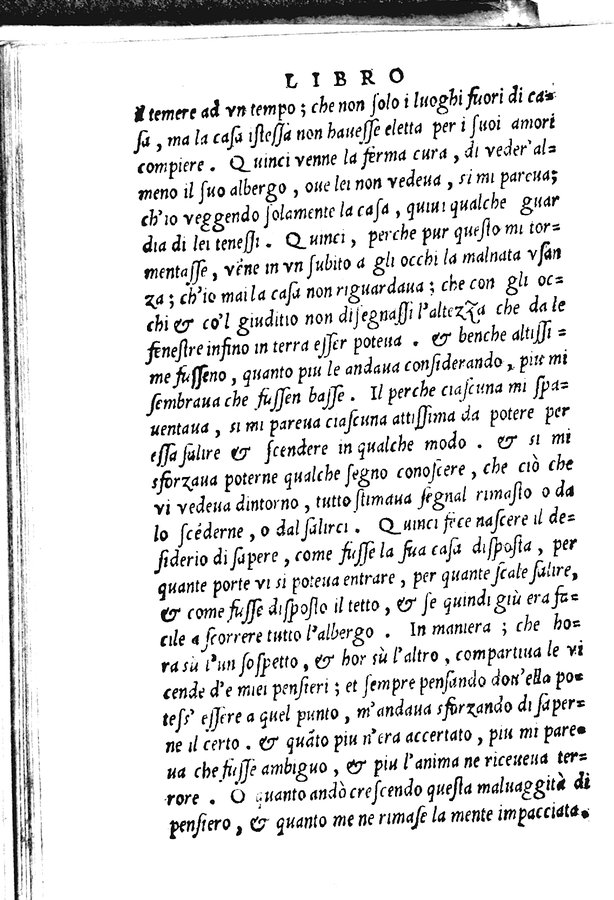 LIBRO
il temere ad vn tempo ; che non ſolo i luoghi fuori di ca=
ſa , ma la caſa iſteſſa non haueſſe eletta per i ſuoi amori
compiere . Quinci venne la ferma cura , di veder'al=
meno il ſuo albergo , oue lei non vedeua , si mi pareua;
ch'io veggendo ſolamente la caſa , quiui qualche guar
dia di lei teneſſi . Quinci , perche pur queſto mi tor=
mentaſſe , vēne in vn ſubito a gli occhi la malnata vſan
za ; ch'io mai la caſa non riguardaua ; che con gli oc=
chi & co'l giuditio non diſegnaſſi l'altezza che da le
feneſtre infino in terra eſſer poteua . & benche altiſſi =
me fuſſeno , quanto piu le andaua conſiderando , piu mi
ſembraua che fuſſen baſſe . Il perche ciaſcuna mi ſpa=
uentaua , si mi pareua ciaſcuna attiſſima da potere per
eſſa ſalire & ſcendere in qualche modo . & si mi
sforzaua poterne qualche ſegno conoſcere , che ciò che
vi vedeua dintorno , tutto ſtimaua ſegnal rimaſto o da
lo ſcéderne , o dal ſalirci . Quinci fece naſcere il de=
ſiderio di ſapere , come fuſſe la ſua caſa diſpoſta , per
quante porte vi si poteua entrare , per quante ſcale ſalire,
& come fuſſe diſpoſto il tetto , & ſe quindi giù era fa=
cile a ſcorrere tutto l'albergo . In maniera ; che ho=
ra sù l'un ſoſpetto , & hor sù l'altro , compartiua le vi
cende d'e miei penſieri ; et ſempre penſando don'ella po=
teſſ' eſſere a quel punto , m'andaua sforzando di ſaper=
ne il certo . & quāto piu n'era accertato , piu mi pare=
ua che fuſſe ambiguo , & piu l'anima ne riceueua ter=
rore . O quanto andò creſcendo queſta maluaggità di
penſiero , & quanto me ne rimaſe la mente impacciata.